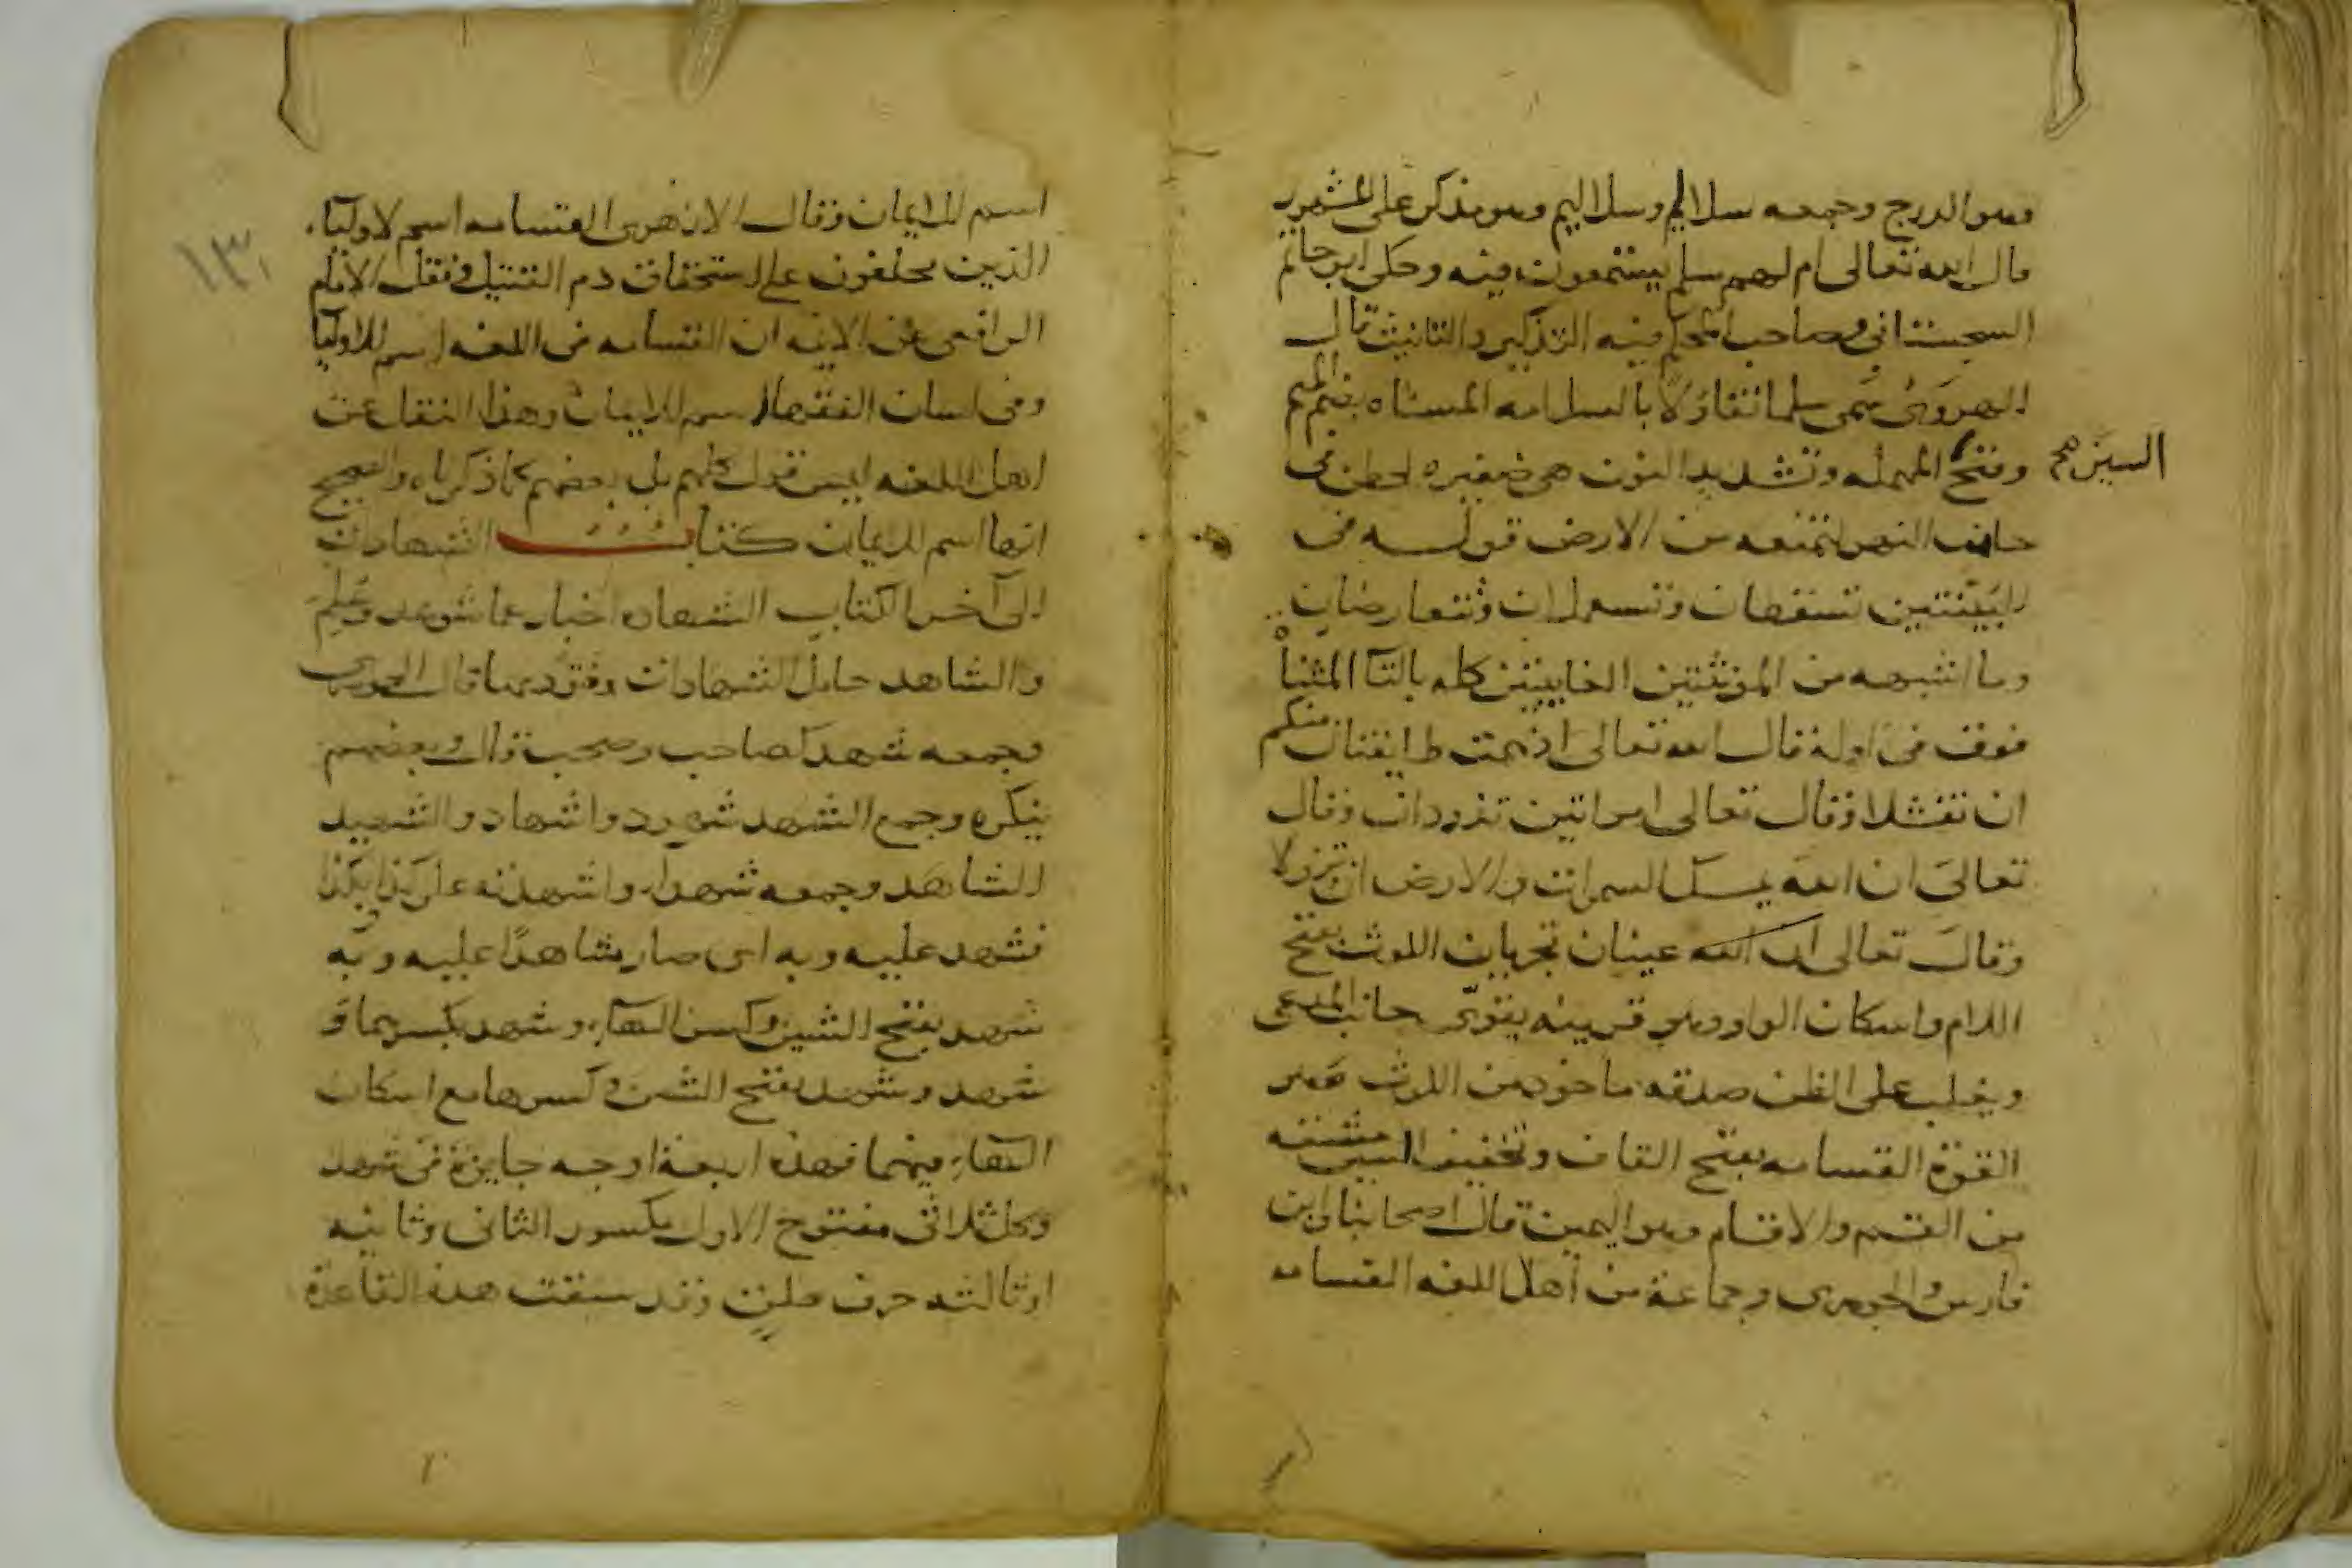 وهو الدرج وجمعه سلالم وسلاليم وهو مذكر على المشهور
قال الله تعالى ام لهم سلم يستمعون فيه وحكى ابو حاتم
السجستاني وصاحب المحكم فيه التذكير والتانيث قال
الهروي سمي سلما تفاؤلا بالسلامه المسناه بضم الميم
وفتح المهمله وتشديد النون هي ضفيره لحطن في
السين صح
حافه النهر لتمنعه من الارض قوله في
البينتين تسقطان وتستعملان وتتعارضان
وما اشبهه من المؤنثتين الغايبتين كله بالتآ المثناة
فوق في اوله قال الله تعالى اذ همت طايفتان منكم
ان تفشلا وقال تعالى امراتين تذودان وقال
تعالى ان الله يمسك السموات والارض ان تزولا
وقال تعالى عينان تجريان اللوث بفتح
اللام واسكان الواو وهو قرينه يقوي جانب المدعي
ويغلب على الظن صدقه ماخوذ من اللوث وهو
القوة القسامه بفتح القاف وتخفيف السين مشتقه
من القسم والاقسام وهو اليمين قال اصحابنا وابن
فارس والجوهري وجماعة من أهل اللغه القسامه
اسم للايمان وقال الازهري القسامه اسم لاوليآء
الذين يحلفون على استحقاق دم القتيل ونقل الامام
الرافعي عن الايمه ان القسامه في اللغه اسم للاوليا
وفي لسان الفقها اسم للايمان وهذا النقل عن
اهل اللغه ليس قول كلهم بل بعضهم كما ذكرناه والصحيح
انها اسم للايمان كتاب الشهادات
الى آخر الكتاب الشهاده اخبار عما شوهد وعلم
والشاهد حامل الشهادات ومؤديها قال الجوهري
وجمعه شهد كصاحب وصحب قال وبعضهم
ينكره وجمع الشهد شهود واشهاد والشهيد
الشاهد وجمعه شهدآء واشهدته على كذا بكذا
فشهد عليه وبه اي صار شاهدًا عليه وبه
شهد بفتح الشين وكسر الهآء وشهد بكسرهما و
شهد وشهد بفتح الشين وكسرها مع اسكان
الهآء فيهما فهذه اربعة اوجه جايزة في شهد
وكل ثلاثي مفتوح الاول مكسور الثاني وثانيه
اوثالثه حرف حلق وقد سبقت هذه القاعدة
١٣١